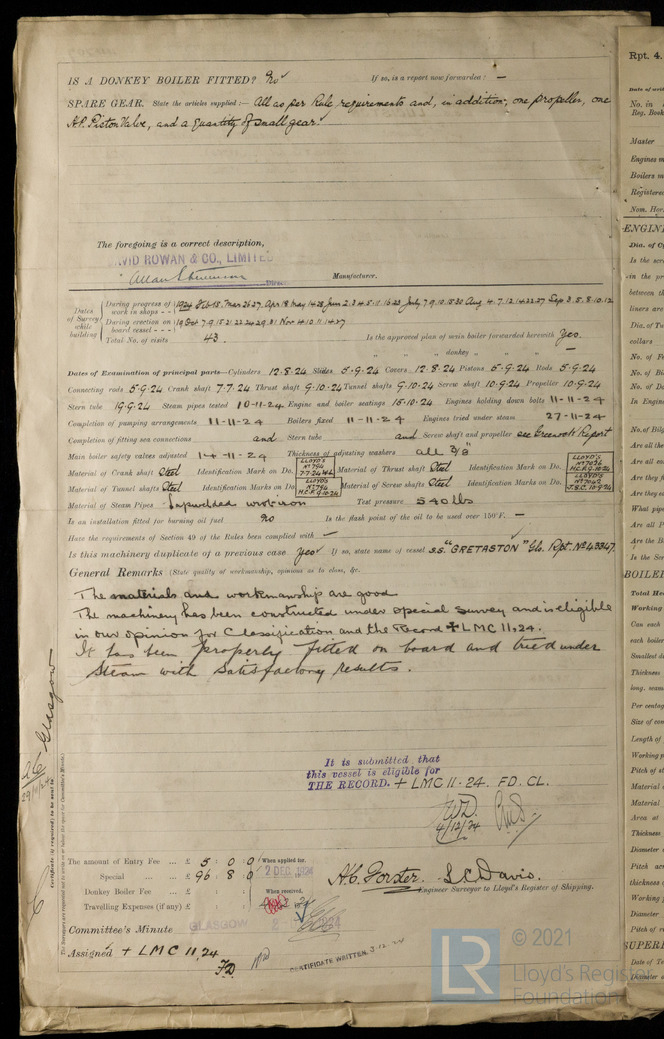 IS A DONKEY BOILER FITTED? No If so, is a report now forwarded: —
SPARE GEAR. State the articles supplied:— All as per Rule requirements and, in addition, one propeller, one
H.P. Piston Valve, and a quantity of small gear.
The foregoing is a correct description,
DAVID ROWAN & CO., LIMITED
Manufacturer.
Dates of Survey while building
During progress of work in shops - - 1924 Feb 18. Mar 26 27. Apr 18 May 14 28 June 2 3 4 5 11 16 23 July 7 9 10 15 30 Aug 4 7 12 14 22 27 Sep 3 5 8 10 12
During erection on board vessel - - - 19 Oct 7 9 15 21 22 24 29 31 Nov 4 10 11 14 27
Total No. of visits 43. Is the approved plan of main boiler forwarded herewith Yes.
" " donkey " " " —
Dates of Examination of principal parts—Cylinders 12.8.24 Slides 5.9.24 Covers 12.8.24 Pistons 5.9.24 Rods 5.9.24
Connecting rods 5.9.24 Crank shaft 7.7.24 Thrust shaft 9.10.24 Tunnel shafts 9.10.24 Screw shaft 10.9.24 Propeller 10.9.24
Stern tube 19.9.24 Steam pipes tested 10-11-24 Engine and boiler seatings 15.10.24 Engines holding down bolts 11-11-24
Completion of pumping arrangements 11-11-24 Boilers fixed 11-11-24 Engines tried under steam 27-11-24
Completion of fitting sea connections and Stern tube and Screw shaft and propeller see Greenock Report
Main boiler safety valves adjusted 14-11-24 Thickness of adjusting washers all 3/8"
Material of Crank shaft Steel Identification Mark on Do. LLOYD'S No 794 7.7.24 Material of Thrust shaft Steel Identification Mark on Do. LLOYD'S H.C.F. 9.10.24
Material of Tunnel shafts Steel Identification Marks on Do. LLOYD'S No 794 H.C.F. 9.10.24 Material of Screw shaft Steel Identification Marks on Do. LLOYD'S No 7042 J.B.C. 10.9.24
Material of Steam Pipes Lapwelded wrot iron Test pressure 540 lbs
Is an installation fitted for burning oil fuel No Is the flash point of the oil to be used over 150°F. —
Have the requirements of Section 49 of the Rules been complied with —
Is this machinery duplicate of a previous case Yes If so, state name of vessel S.S. "GRETASTON" Gls. Rpt. No 43347.
General Remarks (State quality of workmanship, opinions as to class, &c.
The materials and workmanship are good.
The machinery has been constructed under special survey and is eligible
in our opinion for Classification and the Record ✠ LMC 11,24.
It has been properly fitted on board and tried under
steam with satisfactory results.
Glasgow
29/11/24
Certificate (if required) to be sent to
(The Surveyors are requested not to write on or below the space for Committee's Minute.)
It is submitted that
this vessel is eligible for
THE RECORD. + LMC 11.24. FD. CL.
4/12/24
The amount of Entry Fee ... £ 5 : 0 : 0 When applied for,
Special ... ... £ 96 : 8 : 0 2 DEC 1924
Donkey Boiler Fee ... £ : : When received,
Travelling Expenses (if any) £ : :
H.C. Forster. L.C. Davis.
Engineer Surveyor to Lloyd's Register of Shipping.
Committee's Minute GLASGOW 1924
Assigned + LMC 11,24
FD
CERTIFICATE WRITTEN 3.12.24
© 2021
LR
Lloyd's Register
Foundation
Rpt. 4.
No. in
Reg. Book
Master
Engines
Boilers
Registered
Nom. Hor
ENGIN
Dia. of Cy
Is the scr
in the pr
between th
liners are
Dia. of Tu
collars
No. of Fe
No. of Bi
No. of Do
In Engin
No. of Bilg
Are all the
Are all co
Are they f
Are they
What pip
Are all P
Are the B
Is the Scr
BOILER
Total He
Working
Can each
each boiler
Smallest d
Thickness
long. seam
Per centag
Size of com
Length of
Working p
Pitch of st
Material
Material
Area at
Thickness
Diameter
Pitch acr
thickness
Working
Diameter
Pitch of r
SUPERH
Date of Te
Diameter